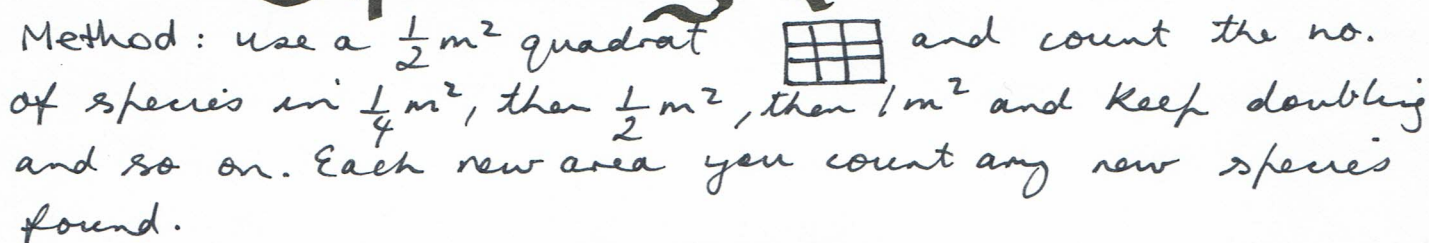 Method: use a ½ m² quadrat and count the no.
of species in ¼ m², then ½ m², then 1 m² and keep doubling
and so on. Each new area you count any new species
found.